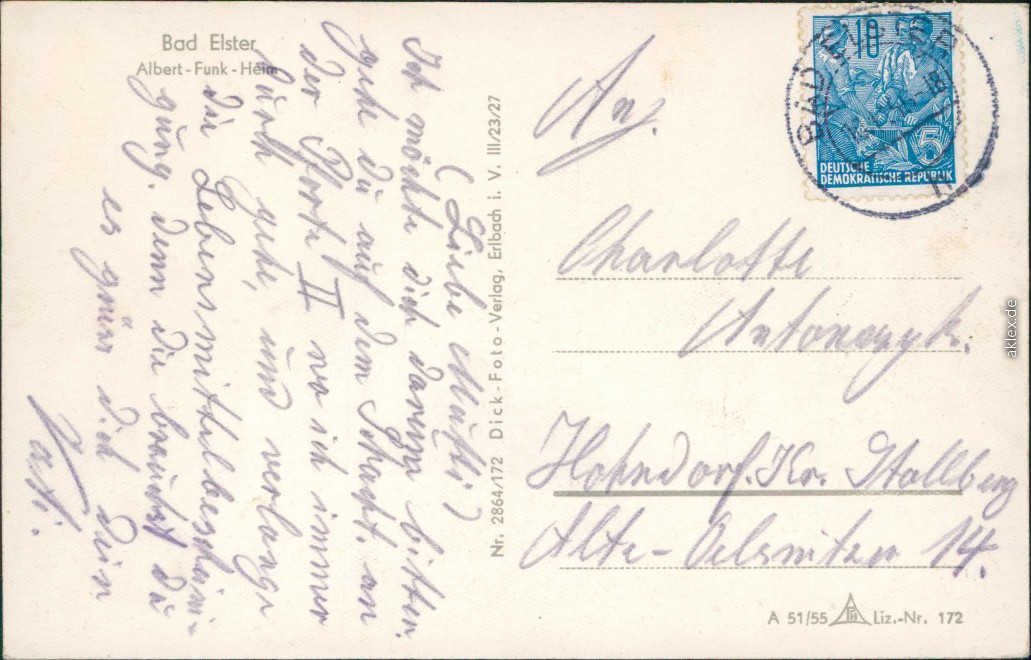 Bad Elster
Albert-Funk-Heim
(Liebe Mutti)
Ich möchte dich darum bitten
gehe du auf dem Schacht. an
der Pforte II wo ich immer
durch gehe, und verlange
die Lebensmittelbeschein-
gung. denn die brauchst du
es grüss dich dein
Vati.
Nr. 2864/172 Dick-Foto-Verlag, Erlbach i. V. III/23/27
An.
Charlotte
Antonczyk.
Hohndorf. Kr. Stollberg
Alte-Oelsnitzer 14.
10
5
DEUTSCHE
DEMOKRATISCHE REPUBLIK
BAD ELSTER
A 51/55 Liz.-Nr. 172
aklex.de